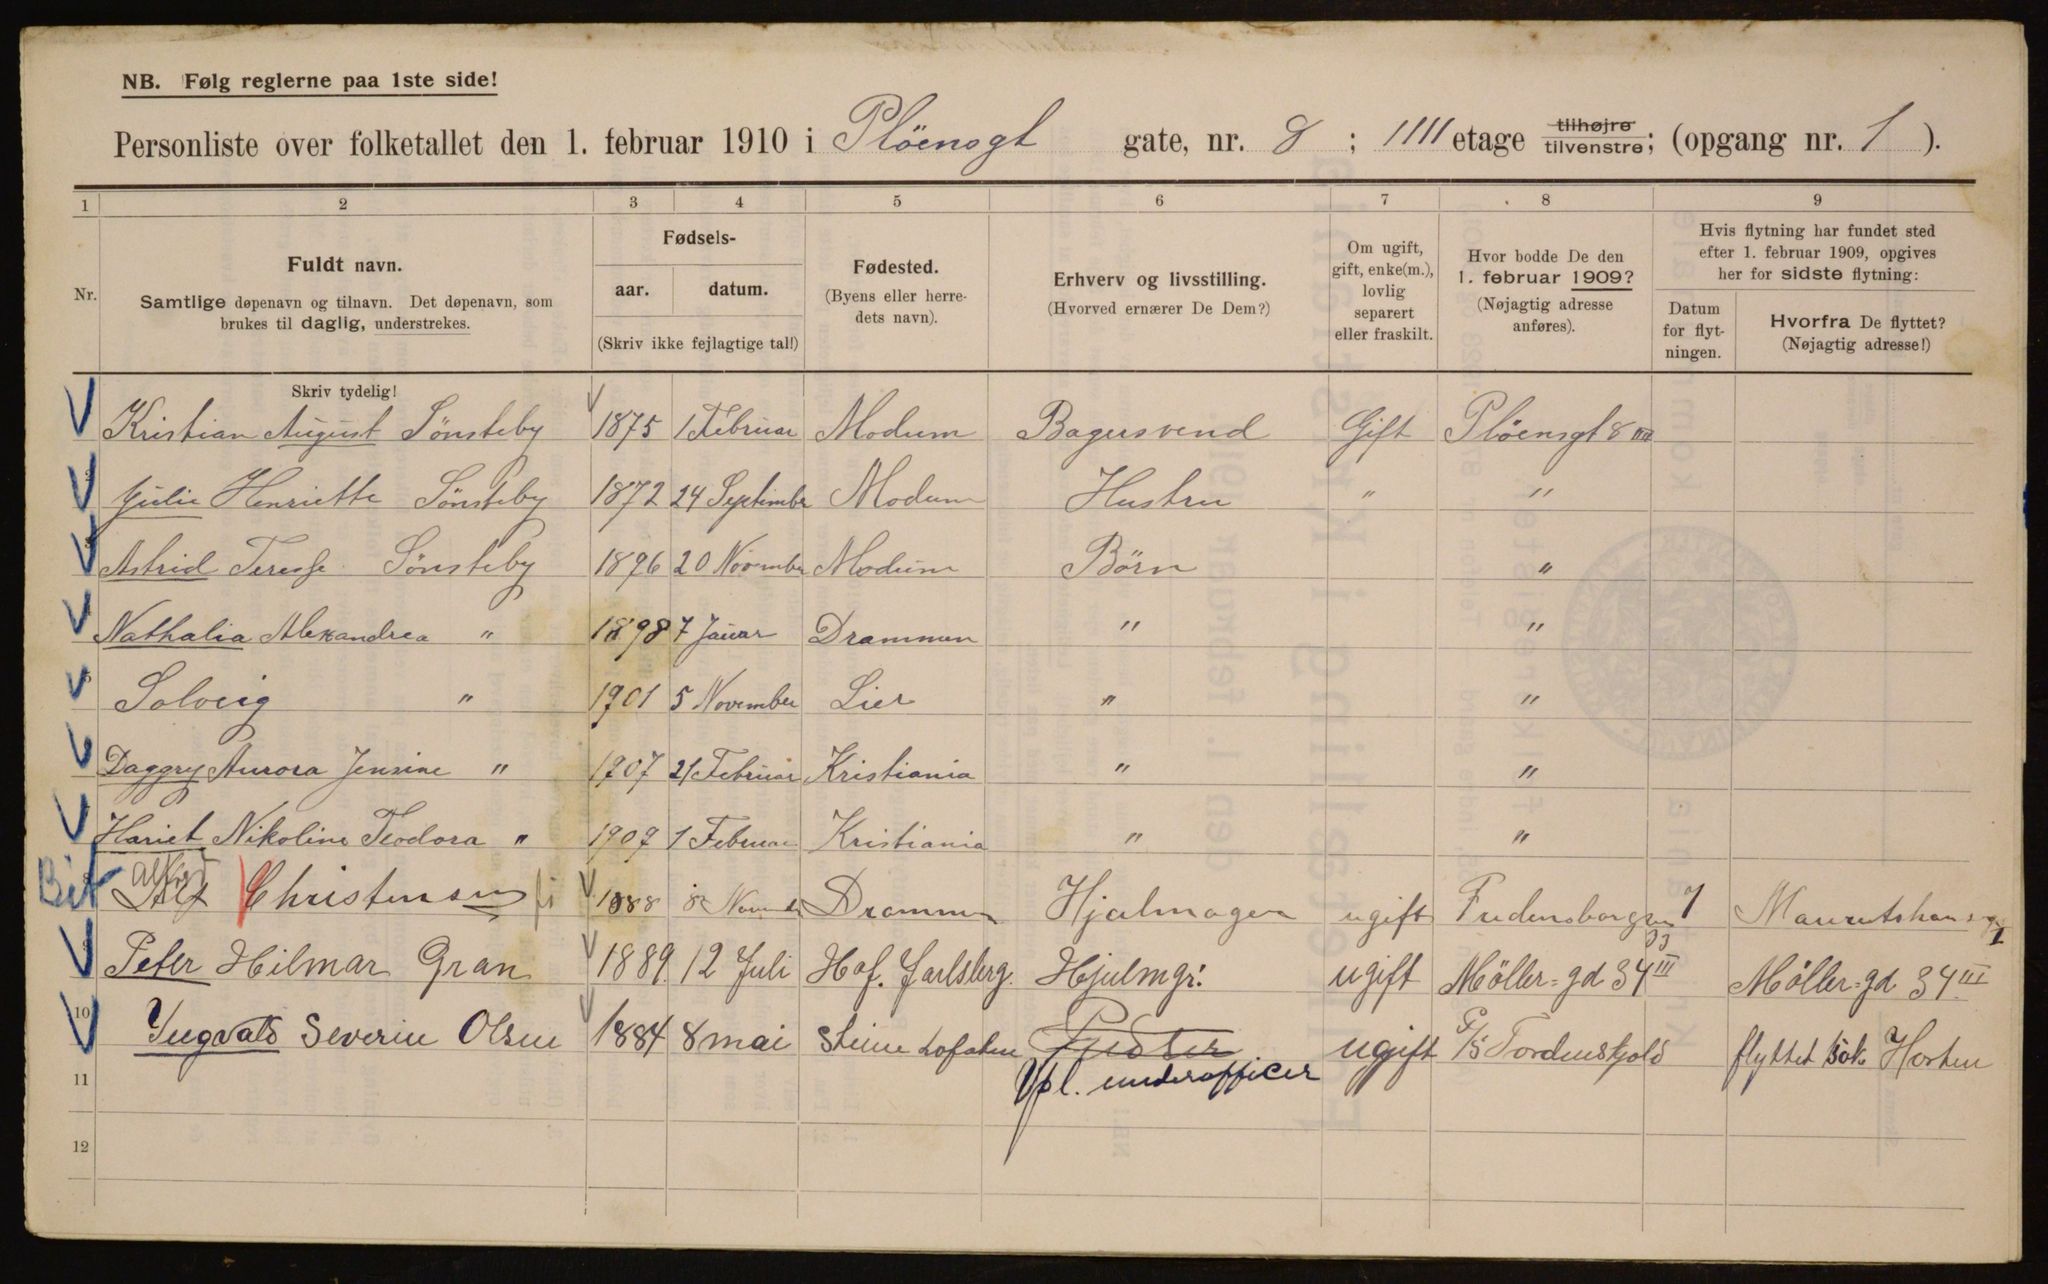 NB. Følg reglerne paa 1ste side!
Personliste over folketallet den 1. februar 1910 i Plöensgt gate, nr. 8 ; IIII etage tilhøjre tilvenstre; (opgang nr. 1 ).
1 2 3 4 5 6 7 8 9
Nr.
Fuldt navn.
Samtlige døpenavn og tilnavn. Det døpenavn, som
brukes til daglig, understrekes.
Skriv tydelig!
Fødsels-
aar. datum.
(Skriv ikke fejlagtige tal!)
Fødested.
(Byens eller herre-
dets navn).
Erhverv og livsstilling.
(Hvorved ernærer De Dem?)
Om ugift,
gift, enke(m.),
lovlig
separert
eller fraskilt.
Hvor bodde De den
1. februar 1909?
(Nøjagtig adresse
anføres).
Hvis flytning har fundet sted
efter 1. februar 1909, opgives
her for sidste flytning:
Datum
for flyt-
ningen.
Hvorfra De flyttet?
(Nøjagtig adresse!)
Kristian August Sönsteby 1875 1 Februar Modum Bagersvend Gift Plöensgt 8 IIII
Julie Henriette Sönsteby 1872 24 September Modum Hustru " "
Astrid Terese Sönsteby 1896 20 November Modum Börn "
Nathalia Alexandrea " 1898 7 Januar Drammen " "
Solveig " 1901 5 November Lier " "
Daggry Aurora Jensine " 1907 21 Februar Kristiania " "
Hariet Nikoline Teodora " 1909 1 Februar Kristiania " "
Alf Christensen 1888 8 Novem Drammen Hjulmager ugift 7
9 Peter Hilmar Gran 1889. 12 Juli Hof. Jarlsberg. Hjulmgr: ugift Möller=gd 34 III Möller=gd 34 III
10 Yngvald Severin Olsen 1884 8 mai Steine Lofoten ugift P/S Tordenskjold flyttet Horten
11 Vpl. underofficer
12